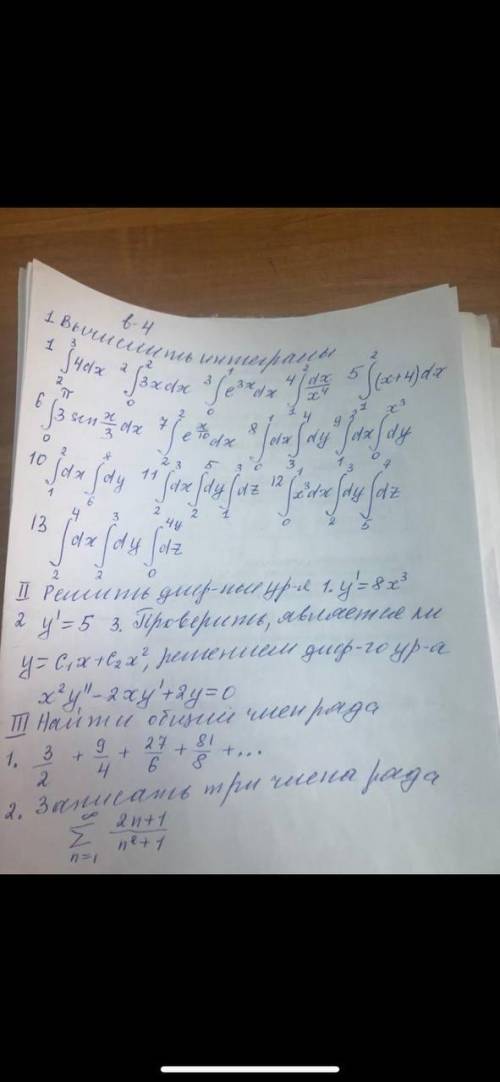 в-4
1. Вычислить интегралы
1 ∫₂³ 4dx 2 ∫₀² 3xdx 3 ∫₀¹ e^{3x} dx 4 ∫₁² dx/x⁴ 5 ∫₁² (x+4)dx
6 ∫₀^π 3 sin x/3 dx 7 ∫₂² e^{x/10} dx 8 ∫₀¹ dx ∫₃⁴ dy 9 ∫₁³ dx ∫₁^{x³} dy
10 ∫₁² dx ∫₆⁸ dy 11 ∫₂³ dx ∫₂⁵ dy ∫₁³ dz 12 ∫₀¹ x³dx ∫₂³ dy ∫₅⁹ dz
13 ∫₂⁴ dx ∫₂³ dy ∫₀^{4y} dz
II Решить диф-ные ур-я 1. y' = 8x³
2 y' = 5 3. Проверить, является ли
y = C₁x + C₂x², решением диф-го ур-я
x²y'' - 2xy' + 2y = 0
III Найти общий член ряда
1. 3/2 + 9/4 + 27/6 + 81/8 + ...
2. Записать три члена ряда
∑_{n=1}^∞ (2n+1)/(n²+1)